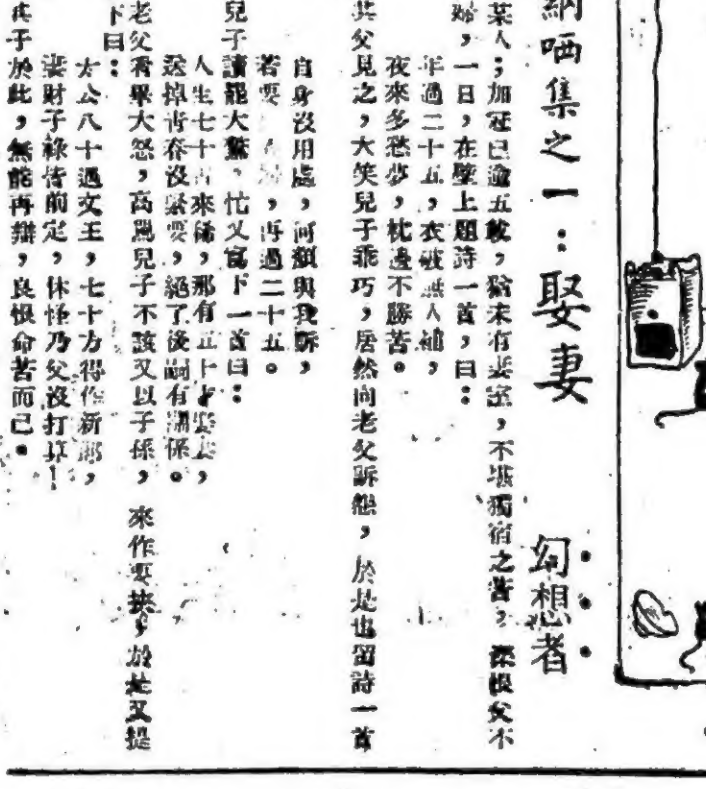 納哂集之一：娶妻　　幻想者
某人；加冠已逾五載，猶未有妻室，不堪獨宿之苦，深恨父不
婦，一日，在壁上題詩一首，曰：
年過二十五，衣破無人補，
夜來多愁夢，枕邊不勝苦。
其父見之，大笑兒子乖巧，居然向老父訴怨，於是也留詩一首
自身沒用處，何顏與我訴，
若要，再過二十五。
兒子讀罷大驚，忙又寫下一首曰：
人生七十古來稀，那有五十才娶，
送掉青春沒緊要，絕了後嗣有關係。
老父看畢大怒，高罵兒子不該又以子孫，來作要挾，於是又提
下曰：
太公八十遇文王，七十方得作新郎，
妻財子祿皆前定，休怪乃父沒打算！
其子於此，無能再辯，良恨命苦而已。